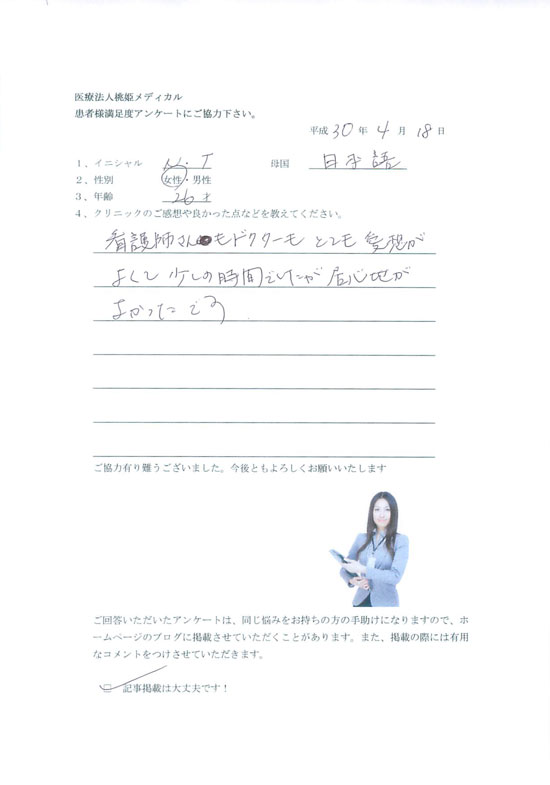 医療法人桃姫メディカル
患者様満足度アンケートにご協力下さい。
平成 30 年 4 月 18 日
1、イニシャル N・T 母国 日本語
2、性別 女性・男性
3、年齢 26才
4、クリニックのご感想や良かった点などを教えてください。
看護師さんもドクターも とても 愛想が
よくて 少しの時間でしたが 居心地が
よかったです
ご協力有り難うございました。今後ともよろしくお願いいたします
ご回答いただいたアンケートは、同じ悩みをお持ちの方の手助けになりますので、ホ
ームページのブログに掲載させていただくことがあります。また、掲載の際には有用
なコメントをつけさせていただきます。
記事掲載は大丈夫です！